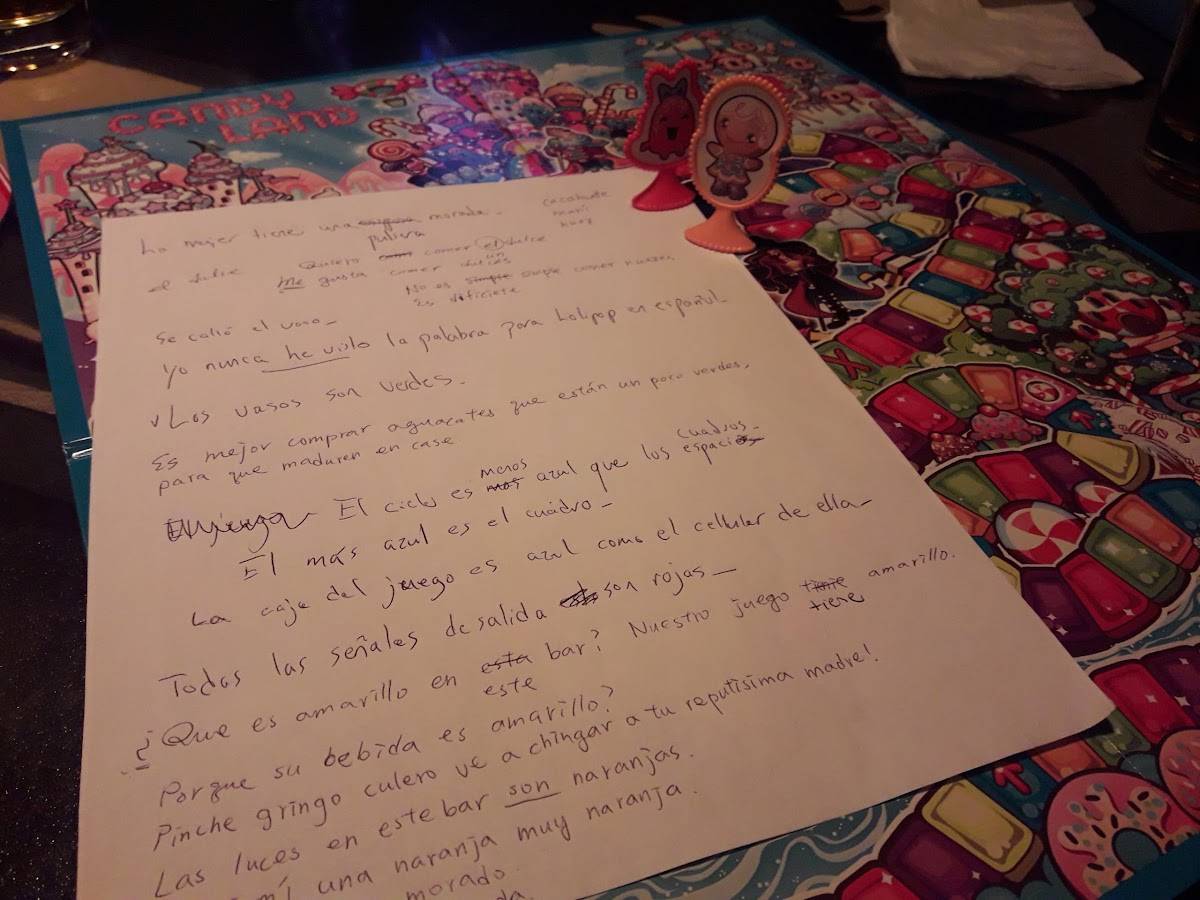 CANDY
LAND
La mujer tiene una morada.
pulsera
cacahuate
maní
nuez
el dulce
Quiero comer el dulce
un
Me gusta comer dulces
No es simple simple comer nueces
Es dificiete
Se calló el vaso
Yo nunca he visto la palabra para Lolipop en español.
Los vasos son verdes.
Es mejor comprar aguacates que están un poco verdes,
para que maduren en case
El cielo es mas azul que los espacios
menos
cuadros.
El más azul es el cuadro
La caja del juego es azul como el cellular de ella
Todas las señales de salida son rojas
¿Que es amarillo en esta bar? Nuestro juego tinie amarillo.
este
tiene
Porque su bebida es amarillo?
Pinche gringo culero ve a chingar a tu reputisima madre!
Las luces en este bar son naranjas.
mí una naranja muy naranja.
morado.